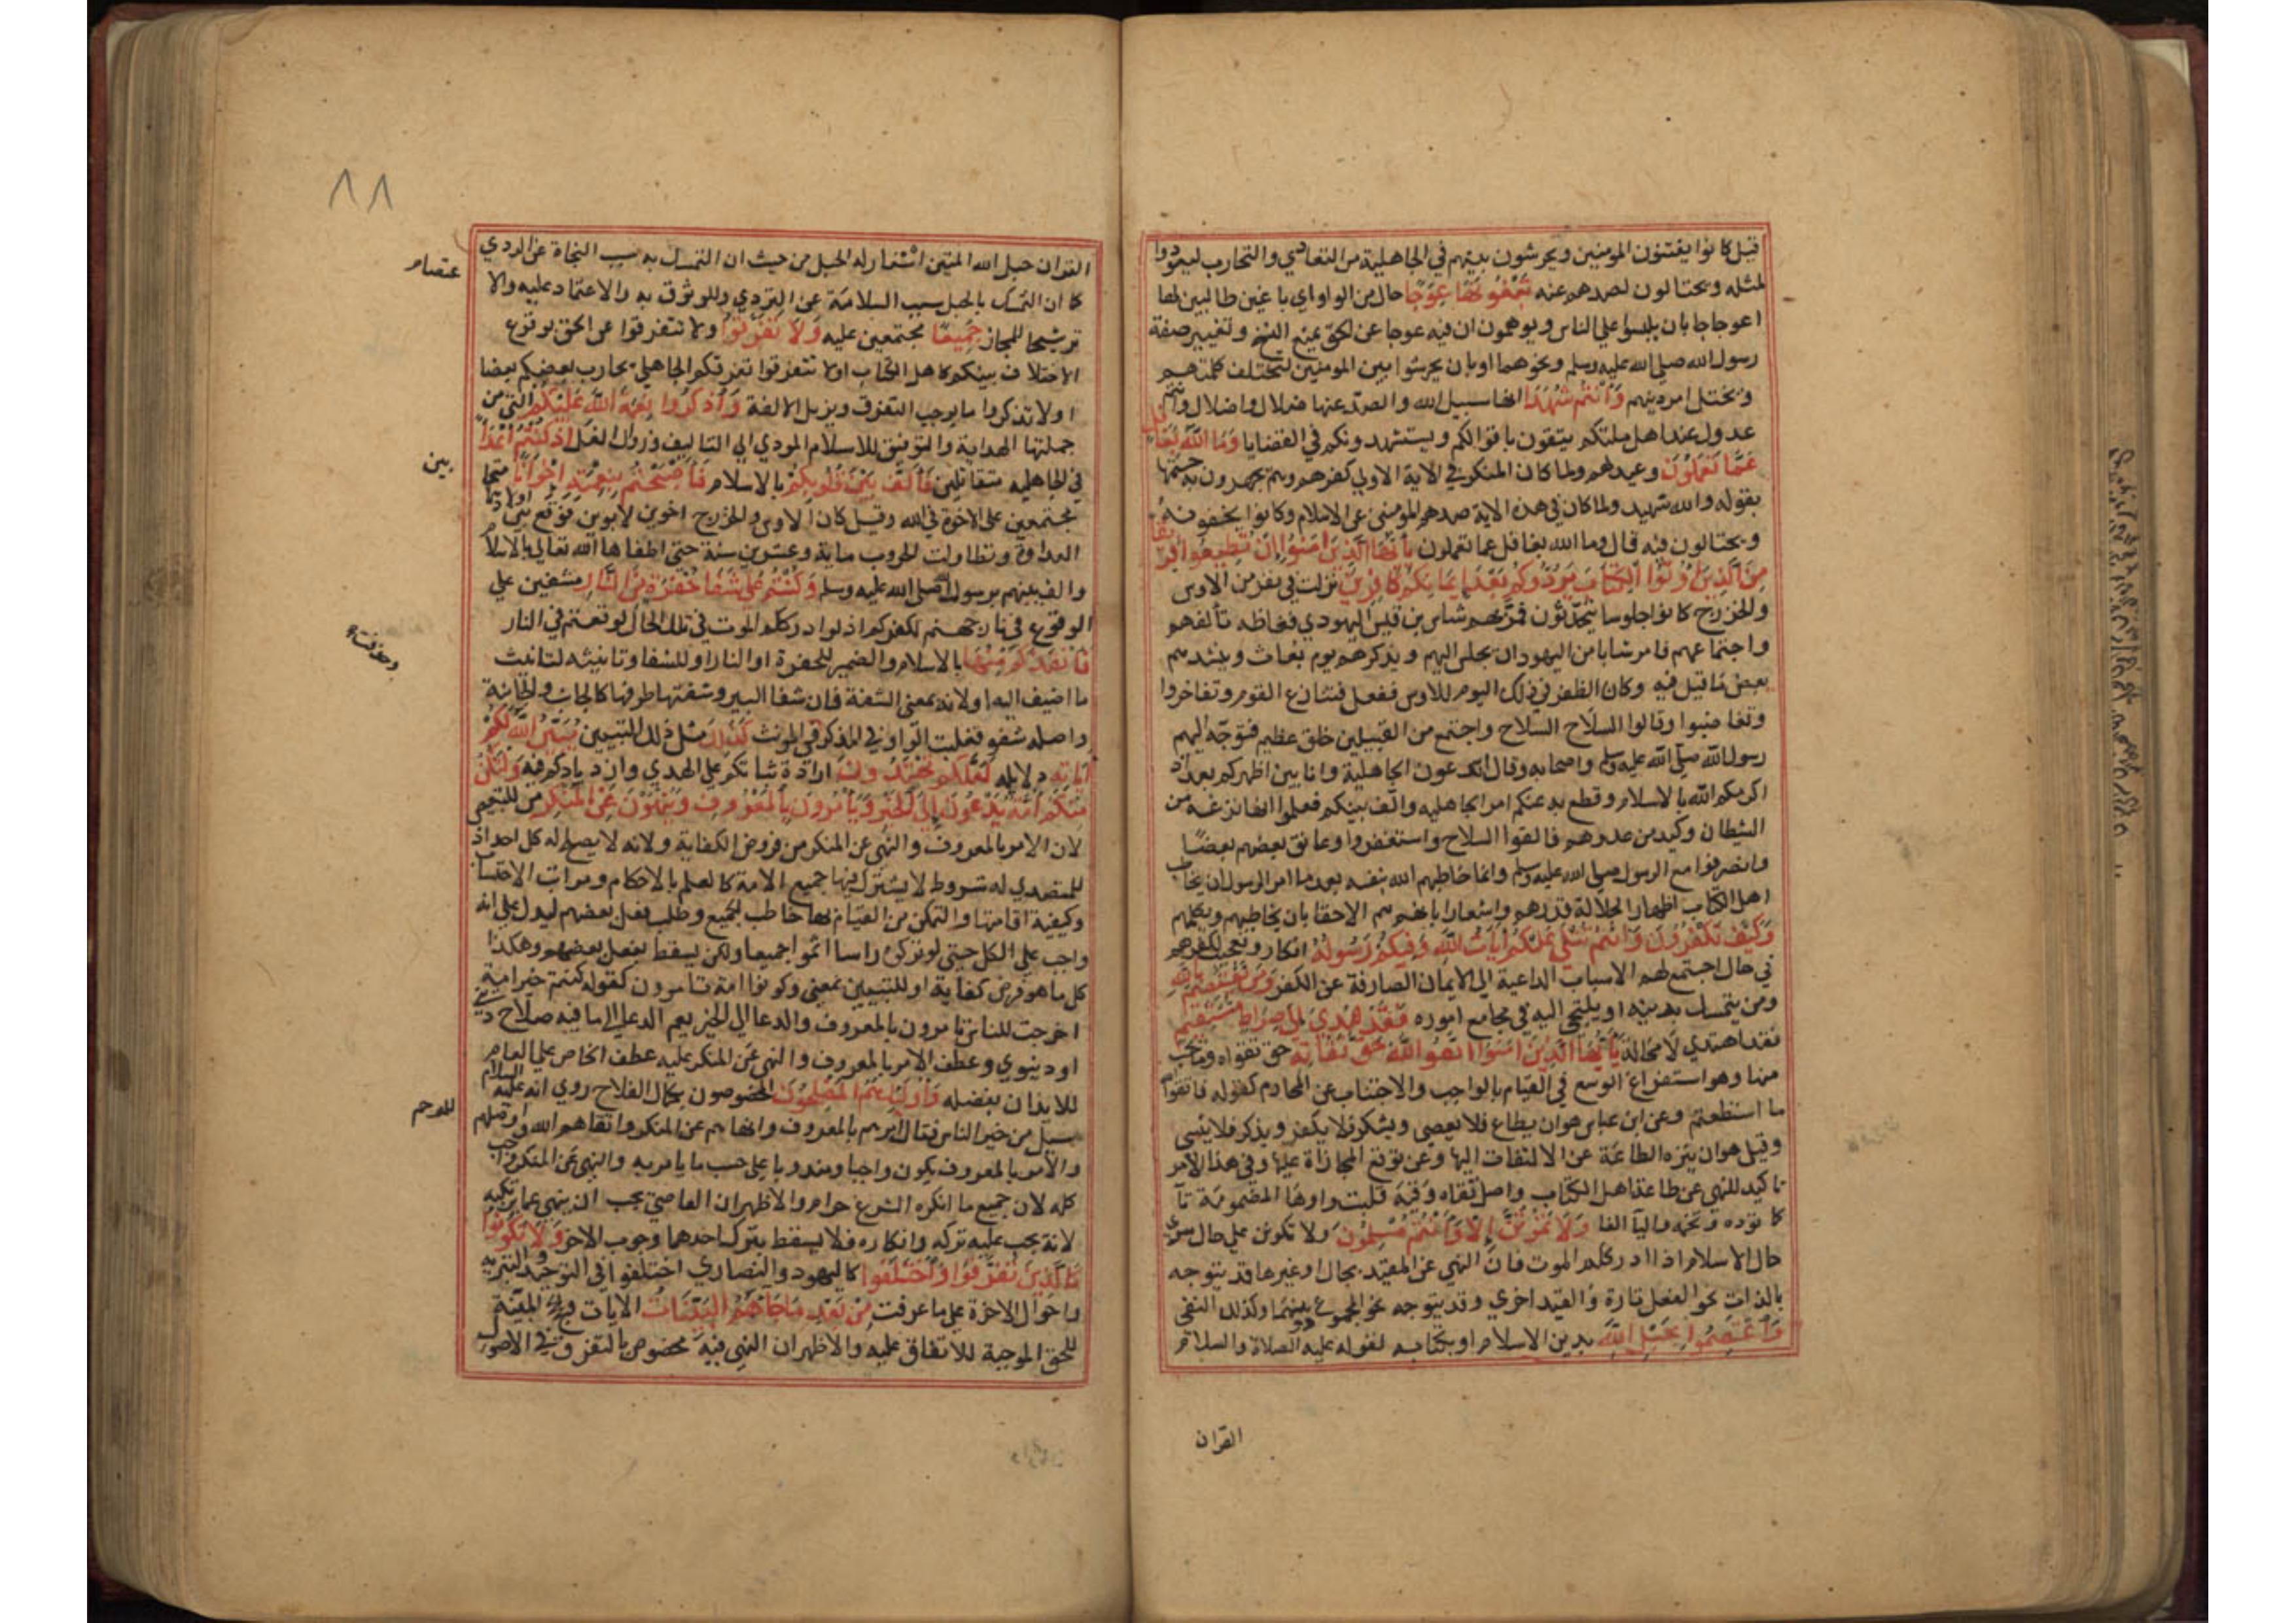 قيل كانوا يفتنون المومنين ويحرشون بينهم في الجاهلية من التعادي والتحارب ليعودوا
لمثله ويحتالون لصدهم عنه تبغونها عوجا حال من الواو اي باغين طالبين لها
اعوجاجا بان يلبسوا علي الناس ويوهمون ان فيه عوجا عن الحق بمنع النسخ وتغيير صفة
رسول الله صلي الله عليه وسلم ونحوهما او بان يحرشوا بين المومنين لتختلف كلمتهم
ويختل امر دينهم وانتم شهدا انها سبيل الله والصد عنها ضلال واضلال وانتم
عدول عند اهل ملتكم يثقون باقوالكم ويستشهدونكم في القضايا وما الله بغافل
عما تعملون وعيد لهم ولما كان المنكر في الاية الاولي كفرهم وهم يجهرون به ختمها
بقوله والله شهيد ولما كان في هذه الاية صدهم المومنين عن الاسلام وكانوا يخفونه
ويحتالون فيه قال وما الله بغافل عما تعملون يا ايها الذين امنوا ان تطيعوا فريقا
من الذين اوتوا الكتاب يردوكم بعد ايمانكم كافرين نزلت في نفر من الاوس
والخزرج كانوا جلوسا يتحدثون فمر بهم شاس بن قيس اليهودي فغاظه تألفهم
واجتماعهم فامر شابا من اليهود ان يجلس اليهم ويذكرهم يوم بعاث وينشدهم
بعض ما قيل فيه وكان الظفر في ذلك اليوم للاوس ففعل فتنازع القوم وتفاخروا
وتغاضبوا وقالوا السلاح السلاح واجتمع من القبيلين خلق عظيم فتوجه اليهم
رسول الله صلي الله عليه وسلم واصحابه وقال اتدعون الجاهلية وانا بين اظهركم بعد اذ
اكرمكم الله بالاسلام وقطع به عنكم امر الجاهليه والف بينكم فعلموا انها نزغة من
الشيطان وكيد من عدوهم فالقوا السلاح واستغفروا وعانق بعضهم بعضا
وانصرفوا مع الرسول صلي الله عليه وسلم وانما خاطبهم الله بنفسه بعد ما امر الرسول ان يخاطب
اهل الكتاب اظهارا لجلالة قدرهم واشعارا بانهم هم الاحقا بان يخاطبهم ويكلمهم
وكيف تكفرون وانتم تتلي عليكم ايات الله وفيكم رسوله انكار وتعجب لكفرهم
في حال اجتمع لهم الاسباب الداعية الي الايمان الصارفة عن الكفر ومن يعتصم بالله
ومن يتمسك بدينه او يلتجي اليه في مجامع اموره فقد هدي الي صراط مستقيم
فقد اهتدي لا محالة يا ايها الذين امنوا اتقوا الله حق تقاته حق تقواه وما يجب
منها وهو استفراغ الوسع في القيام بالواجب والاجتناب عن المحارم كقوله فاتقوا
ما استطعتم وعن ابن عباس هو ان يطاع فلا يعصي ويشكر فلا يكفر ويذكر فلا ينسي
وقيل هو ان ينزه الطاعة عن الالتفات اليها وعن توقع المجازاة عليها وفي هذا الامر
تاكيد للنهي عن طاعة اهل الكتاب واصل تقاه وقية قلبت واوها المضمومة تآ
كما تودة وتخمة واليآ الفا ولا تموتن الا وانتم مسلمون ولا تكونن علي حال سوي
حال الاسلام اذا ادرككم الموت فان النهي عن المقيد بحال او غيرها قد يتوجه
بالذات نحو الفعل تارة والقيد اخري وقد يتوجه نحو المجموع دونهما وكذلك النفي
واعتصموا بحبل الله بدين الاسلام او بكتابه لقوله عليه الصلاة والسلام
القران
٨٨
القران حبل الله المتين استعار له الحبل من حيث ان التمسك به سبب النجاة عن الردي
كما ان التمسك بالحبل سبب السلامة عن التردي وللوثوق به والاعتماد عليه والا
عتصام
ترشيحا للمجاز جميعا مجتمعين عليه ولا تفرقوا ولا تتفرقوا عن الحق بوقوع
الاختلاف بينكم كاهل الكتاب او لا تتفرقوا تفرقكم الجاهلي يحارب بعضكم بعضا
او لا تذكروا ما يوجب التفرق ويزيل الالفة واذكروا نعمة الله عليكم التي من
جملتها الهداية والتوفيق للاسلام المودي الي التاليف وزوال الغل اذ كنتم اعدآ
في الجاهليه متقاتلين فالف بين قلوبكم بالاسلام فاصبحتم بنعمته اخوانا متحا
بين
مجتمعين علي الاخوة في الله وقيل كان الاوس والخزرج اخوين لابوين فوقع بين اولادهما
العداوة وتطاولت الحروب ماية وعشرين سنة حتي اطفاها الله تعالي بالاسلام
والف بينهم برسول الله صلي الله عليه وسلم وكنتم علي شفا حفرة من النار مشفين علي
الوقوع في نار جهنم لكفركم اذ لو ادرككم الموت في تلك الحال لوقعتم في النار
فانقذكم منها بالاسلام والضمير للحفرة او النار او للشفا وتانيثه لتانيث
ما اضيف اليه او لانه بمعني الشفة فان شفا البير وشفتها طرفها كالجانب والجانبة
واصله شفو فقلبت الواو في المذكر في المونث كذلك مثل ذلك التبيين يبين الله لكم
اياته دلايله لعلكم تهتدون ارادة ثباتكم علي الهدي وازديادكم فيه ولتكن
منكم امة يدعون الي الخير ويأمرون بالمعروف وينهون عن المنكر من للتبعيض
لان الامر بالمعروف والنهي عن المنكر من فروض الكفاية ولانه لا يصلح له كل احد اذ
للمتصدي له شروط لا يشترك فيها جميع الامة كالعلم بالاحكام ومراتب الاحتساب
وكيفية اقامتها والتمكن من القيام بها خاطب الجميع وطلب فعل بعضهم ليدل علي انه
واجب علي الكل حتي لو تركوه راسا اثموا جميعا ولكن يسقط بفعل بعضهم وهكذا
كل ما هو فرض كفاية او للتبيين بمعني وكونوا امة تامرون كقوله كنتم خير امة
اخرجت للناس تامرون بالمعروف والدعا الي الخير يعم الدعا الي ما فيه صلاح ديني
او دنيوي وعطف الامر بالمعروف والنهي عن المنكر عليه عطف الخاص علي العام
للايذان بفضله واوليك هم المفلحون المخصوصون بكمال الفلاح روي انه عليه السلام
سيل من خير الناس فقال امرهم بالمعروف وانهاهم عن المنكر واتقاهم الله واوصلهم
للرحم
والامر بالمعروف يكون واجبا ومندوبا علي حسب ما يامر به والنهي عن المنكر واجب
كله لان جميع ما انكره الشرع حرام والاظهر ان العاصي يجب ان ينهي عما يرتكبه
لانه يجب عليه تركه وانكاره فلا يسقط بترك احدهما وجوب الاخر ولا تكونوا
كالذين تفرقوا واختلفوا كاليهود والنصاري اختلفوا في التوحيد والتنزيه
واحوال الاخرة علي ما عرفت من بعد ما جاهم البينات الايات والحجج المبينة
للحق الموجبة للاتفاق عليه والاظهر ان النهي فيه مخصوص بالتفرق في الاصول